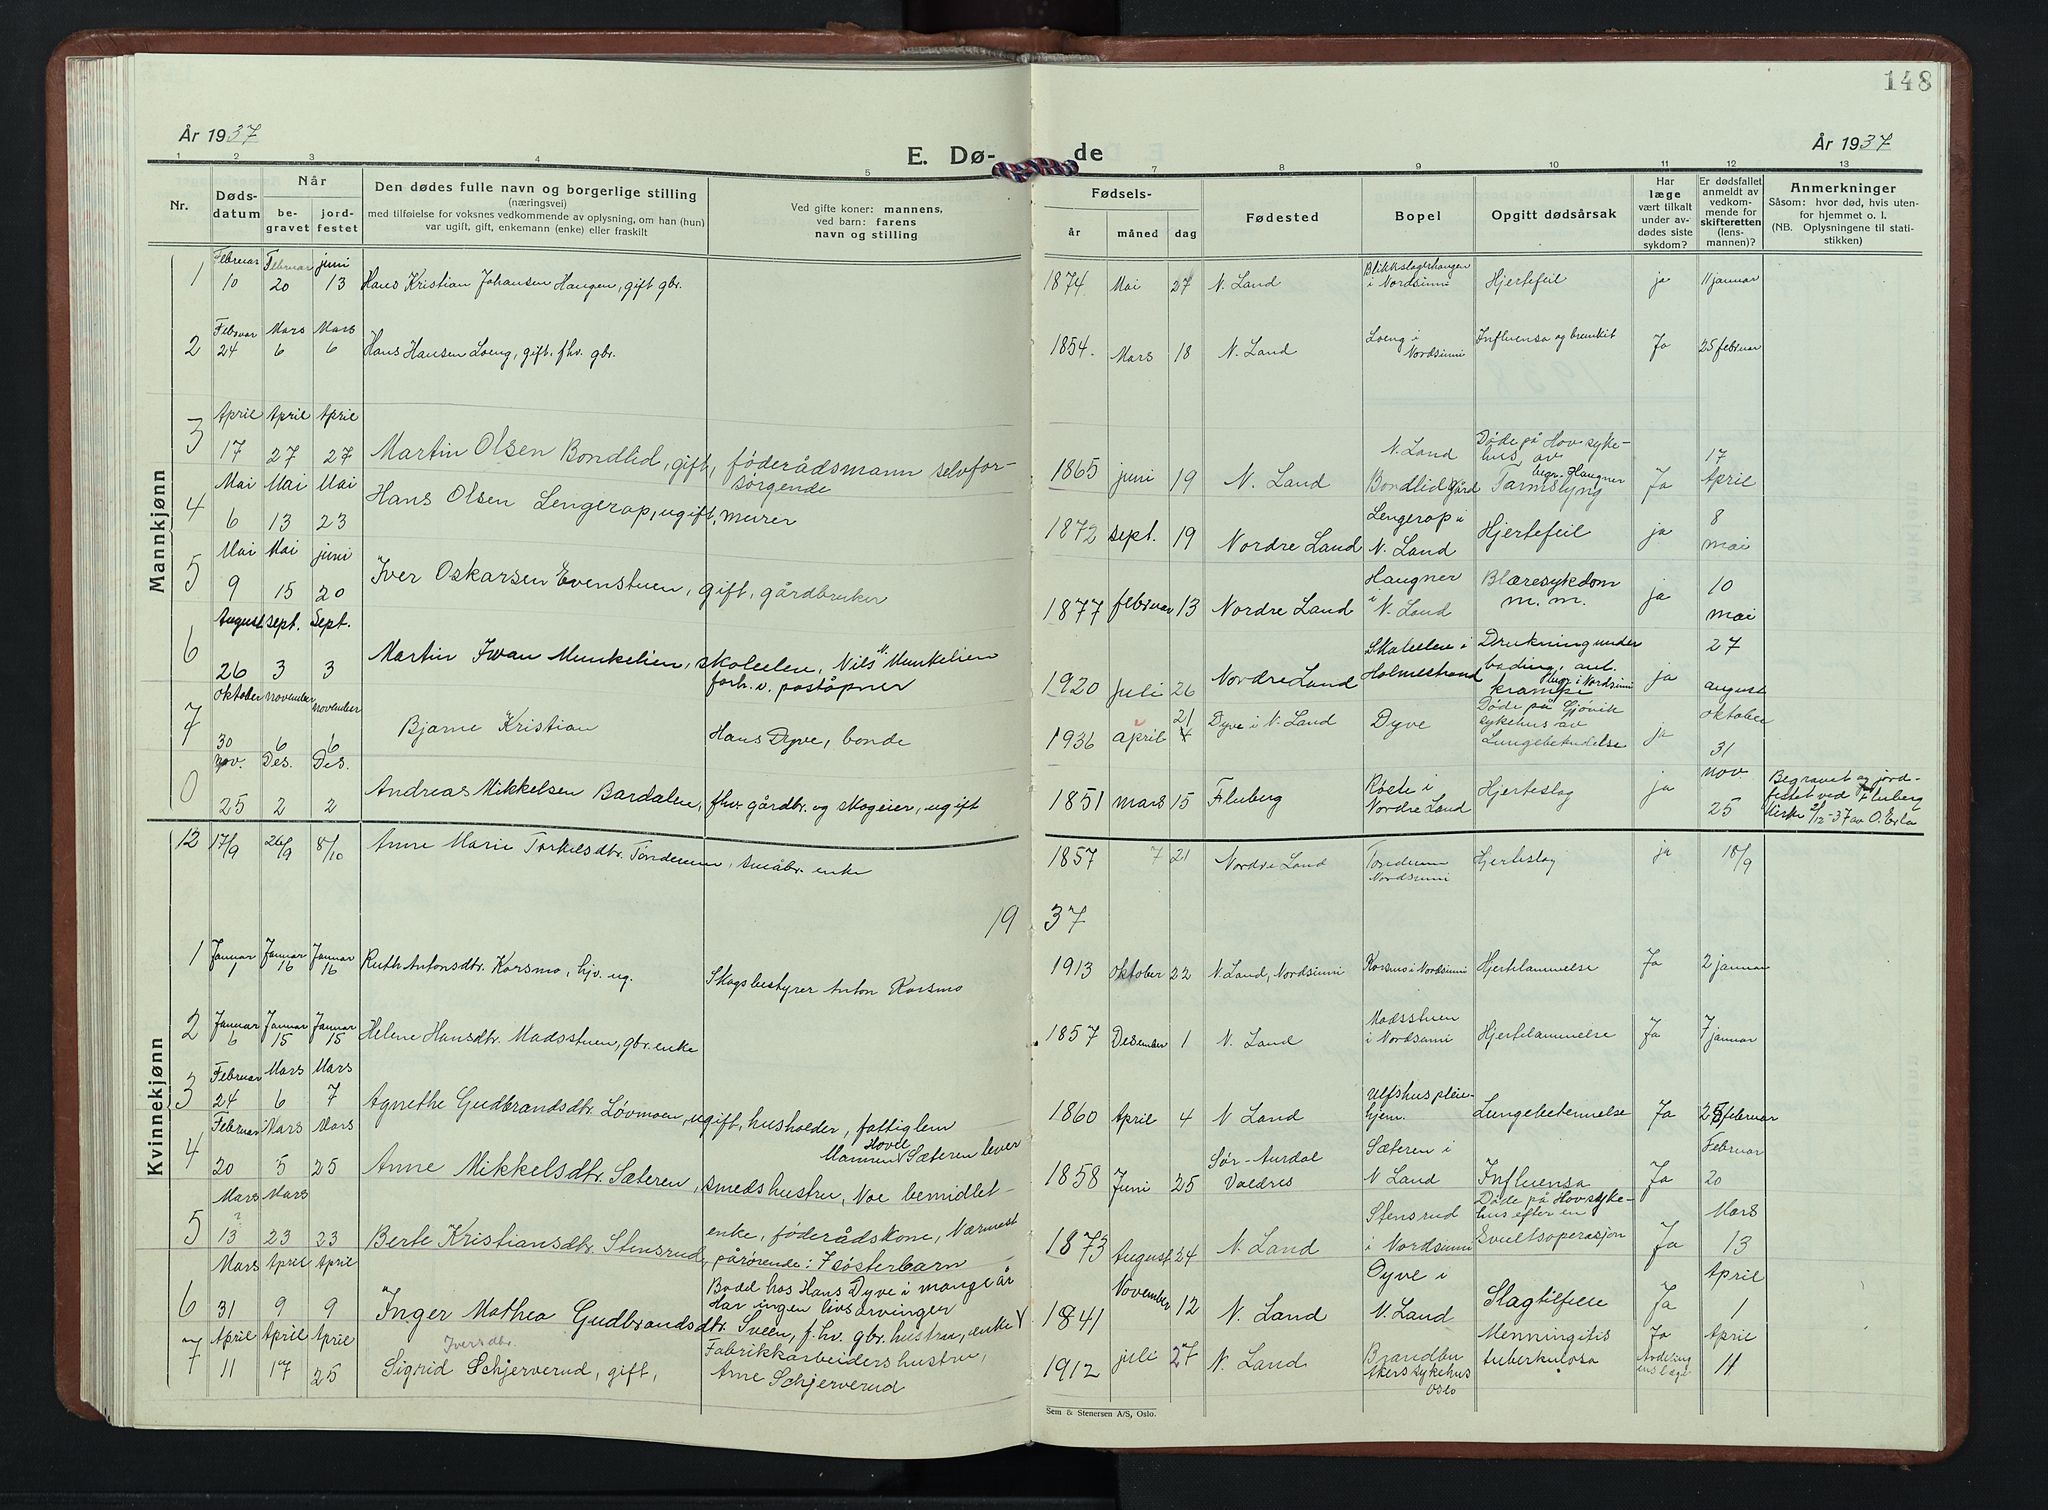 148
År 1937
E. Dø-
de
År 1937
1 2 3 4 5 7 8 9 10 11 12 13
Nr.
Døds-
datum
Når
be-
gravet
jord-
festet
Den dødes fulle navn og borgerlige stilling
(næringsvei)
med tilføielse for voksnes vedkommende av oplysning, om han (hun)
var ugift, gift, enkemann (enke) eller fraskilt
Ved gifte koner: mannens,
ved barn: farens
navn og stilling
Fødsels-
år
måned
dag
Fødested
Bopel
Opgitt dødsårsak
Har
læge
vært tilkalt
under av-
dødes siste
sykdom?
Er dødsfallet
anmeldt av
vedkom-
mende for
skifteretten
(lens-
mannen)?
Anmerkninger
Såsom: hvor død, hvis uten-
for hjemmet o. l.
(NB. Oplysningene til stati-
stikken)
Mannkjønn
1 Februar 10 Februar 20 juni 13 Hans Kristian Johansen Haugen, gift gbr. 1874 Mai 27 N. Land Blikkslagerhaugen i Nordsinni Hjertefeil ja 11 januar
2 Februar 24 Mars 6 Mars 6 Hans Hansen Loeng, gift. fhv. gbr. 1854. Mars 18 N. Land Loeng i Nordsinni Influensa og bronkit Ja 25 februar
3 April 17 April 27 April 27 Martin Olsen Bondlid, gift, föderådsmann selvfor-
sørgende 1865 juni 19 N. Land N. Land Bondlid Gård Døde på Hov syke-
hus av Tarmslyng begr. Haugner Ja 17 April
4 Mai 6 Mai 13 Mai 23 Hans Olsen Lengerop, ugift, murer 1872 sept. 19 Nordre Land Lengerop i N. Land Hjertefeil ja 8 mai
5 Mai 9 Mai 15 juni 20 Iver Oskarsen Evenstuen, gift, gårdbruker 1877 februar 13 Nordre Land Haugner i N. Land Blæresykdom m.m. ja 10 mai
6 August 26 sept. 3 Sept. 3 Martin Iwan Munkelien, skoleelev, Nils N. Munkelien
forh.v. poståpner 1920 juli 26 Nordre Land Skoleelev i Holmestrand Drukning under
bading, ant.
krampe begr. i Nordsinni ja 27 august
7 oktober 30 november 6 november 6 Bjarne Kristian Hans Dyve, bonde 1936 april 21 Dyve i N. Land Dyve Døde på Gjövik
sykehus av
Lungebetendelse ja oktober 31
0 Nov. 25 Des. 2 Des. 2 Andreas Mikkelsen Bardalen, fhv. gårdbr. og skogeier, ugift 1851 mars 15 Fluberg Røste i Nordre Land Hjerteslag ja nov 25 Begravet og jord-
festet ved Fluberg
kirke 2/12-37 av O. Erla
12 17/9 26/9 8/10 Anne Marie Torkelsdtr. Tønderum, småbr. enke 1857 7 21 Nordre Land Tonderum Nordsinni Hjerteslag ja 18/9
1937
Kvinnekjønn
1 Januar 1 Januar 16 Januar 16 Ruth Antonsdtr. Korsmo, hjv. ug. Skogsbestyrer Anton Korsmo 1913 oktober 22 N. Land, Nordsinni Korsmo i Nordsinni Hjertelammelse Ja 2 januar
2 Januar 6 Januar 15 Januar 15 Helene Hansdtr. Madsstuen, gbr. enke 1857 Desember 1 N. Land Madsstuen i Nordsinni Hjertelammelse Ja 7 januar
3 Februar 24 Mars 6 Mars 7 Agnethe Gudbrandsdtr. Løvmoen, ugift, husholder, fattiglem 1860 April 4 N Land Ulfshus pleie-
hjem. Lungebetennelse Ja 25 februar
4 Februar 20 Mars 5 Mars 25 Anne Mikkelsdtr. Sæteren, smedshustru, Noe bemidlet Mannen Hovel Sæteren lever 1858 Juni 25 Sør-Aurdal Valdres Sæteren i N Land Influensa Ja Februar 20
5 Mars 13 ? Mars 23 23 Berte Kristiansdtr. Stensrud, enke, föderådskone, Nærmest
pårørende: 7 söster barn 1873 August 24 N. Land Stensrud i Nordsinni Døde på Hov syke-
hus efter en
Svultsoperasjon Ja Mars 13
6 Mars 31 April 9 April 9 Inger Mathea Gudbrandsdtr. Sveen, f.hv. gbr. hustru, enke Bodd hos Hans Dyve i mange år
Har ingen livsarvinger 1841 November 12 N. Land Dyve i N. Land Slagtilfelle Ja April 1
7 April 11 April 17 April 25 Sigrid Iversdtr. Schjerverud, gift, Fabrikkarbeiders hustru,
Arne Schjerverud 1912 juli 27 N. Land Brandbu Akers sykehus Oslo Menningitis
tuberkulosa Ja Avdelingens læge April 11
Sem & Stenersen A/S, Oslo.